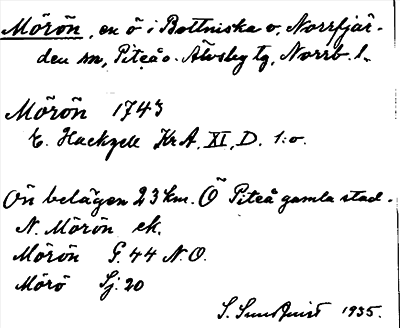 Mörön, en ö i Bottniska v. Norrfjär-
den sn, Piteå o. Älvsby tg, Norrb. l.
Mörön 1743
E. Hackzell KrA, XI, D. 1:o.
Ön belägen 23 km. Ö Piteå gamla stad.
N. Mörön ek.
Mörön G. 44 N.O.
Mörö Sj. 20
S. Sundqvist 1935.